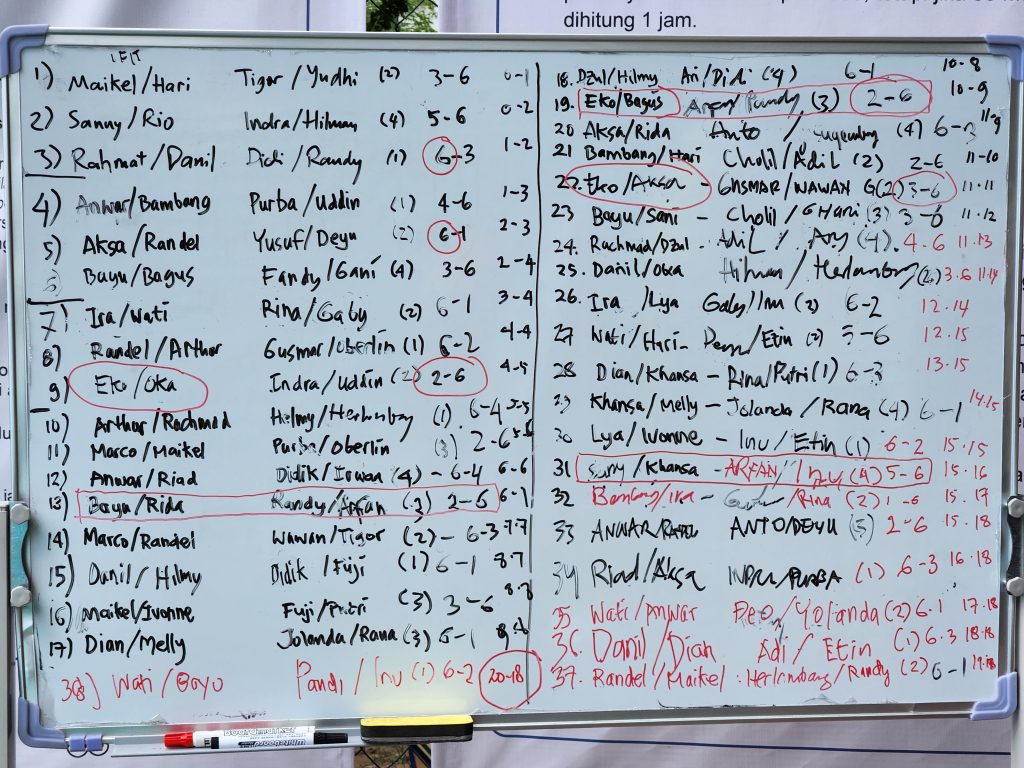 dihitung 1 jam.
1) Maikel/Hari Tigor/Yudhi (2) 3-6 0-1
2) Sanny/Rio Indra/Hilman (4) 5-6 0-2
3) Rahmat/Danil Didi/Randy (1) 6-3 1-2
4) Anwar/Bambang Purba/Uddin (1) 4-6 1-3
5) Aksa/Randel Yusuf/Deyu (2) 6-1 2-3
6) Bayu/Bagus Fandy/Gani (4) 3-6 2-4
7) Ira/Wati Rina/Gaby (2) 6-1 3-4
8) Randel/Arthur Gusmar/Oberlin (1) 6-2 4-4
9) Eko/Oka Indra/Uddin (2) 2-6 4-5
10) Arthur/Rachmad Helmy/Herlambang (1) 6-4 5-5
11) Marco/Maikel Purba/Oberlin (3) 2-6 5-6
12) Anwar/Riad Didik/Irwan (4) - 6-4 6-6
13) Bayu/Rida Randy/Arfan (3) 2-5 6-7
14) Marco/Randel Wawan/Tigor (2) - 6-3 7-7
15) Danil/Hilmy Didik/Fuji (1) 6-1 8-7
16) Maikel/Ivonne Fuji/Putri (3) 3-6
17) Dian/Melly Jolanda/Rana (3) 6-1
38) Wati/Bayu Pandi/Inu (1) 6-2 20-18
18. Dzul/Hilmy Ari/Didi (4) 6-1 10-8
19. Eko/Bagus Arfan/Randy (3) 2-6 10-9
20 Aksa/Rida Anto / (4) 6-3 11-9
21 Bambang/Hari Cholil/Adil (2) 2-6 11-10
22. Eko/Aksa - Gusmar/WAWAN G(2) 3-6 11-11
23 Bayu/Sani - Cholil/GHani (3) 3-6 11.12
24. Rachmad/Dzul - Adil/Ary (4). 4.6 11.13
25. Danil/Oka Hilman/Herlambang (2) 3.6 11.14
26. Ira/Lya Gaby/Inu (2) 6-2 12.14
27 Wati/Hari- Deyu/Etin (2) 5-6 12.15
28 Dian/Khansa - Rina/Putri (1) 6-3 13.15
29 Khansa/Melly - Jolanda/Rana (4) 6-1 14.15
30 Lya/Ivonne - Inu/Etin (1) 6-2 15.15
31 Sany/Khansa - ARFAN/ (4) 5-6 15-16
32 Bambang/Ira - /Rina (2) 1-6 15.17
33 ANWAR/ ANTO/DEYU (3) 2-6 15.18
34 Riad/Aksa INDRA/PURBA (1) 6-3 16.18
35 Wati/Anwar Deo/Yolanda (2) 6.1 17.18
36. Danil/Dian Adi/Etin (1) 6.3 18.18
37. Randel/Maikel : Herlambang/Randy (2) 6-1 19.18